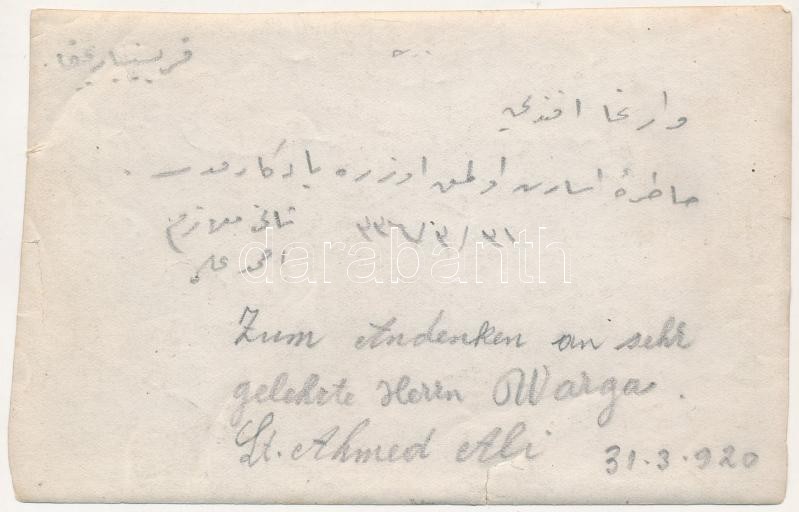 وارغا افندی
خاطرهٔ اسارت اولمق اوزره یادکارمدر .
٣١/٣/٣٣٦ ثانی ملازم
احمد علی
darabanth
Zum Andenken an sehr
gelehrte Herrn Warga.
Lt. Ahmed Ali 31.3.920